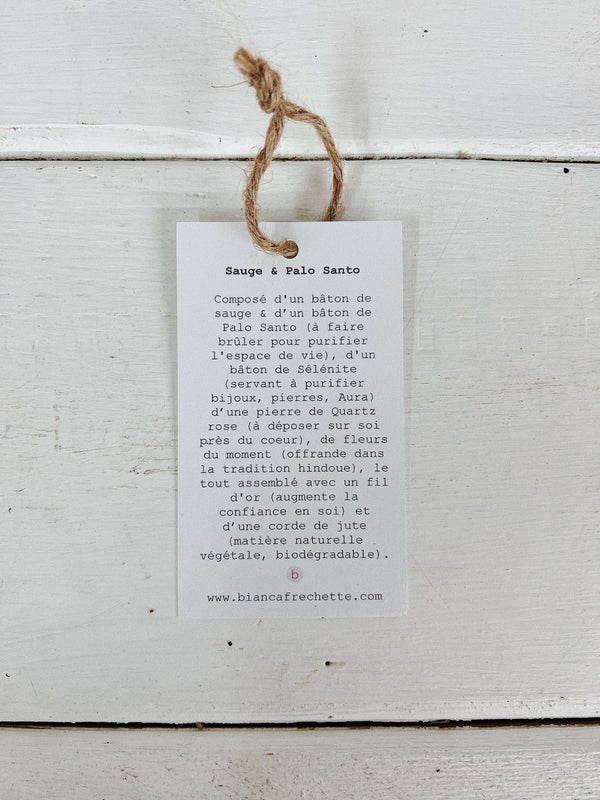 Sauge & Palo Santo
Composé d'un bâton de
sauge & d’un bâton de
Palo Santo (à faire
brûler pour purifier
l'espace de vie), d'un
bâton de Sélénite
(servant à purifier
bijoux, pierres, Aura)
d’une pierre de Quartz
rose (à déposer sur soi
près du coeur), de fleurs
du moment (offrande dans
la tradition hindoue), le
tout assemblé avec un fil
d'or (augmente la
confiance en soi) et
d’une corde de jute
(matière naturelle
végétale, biodégradable).
b
www.biancafrechette.com